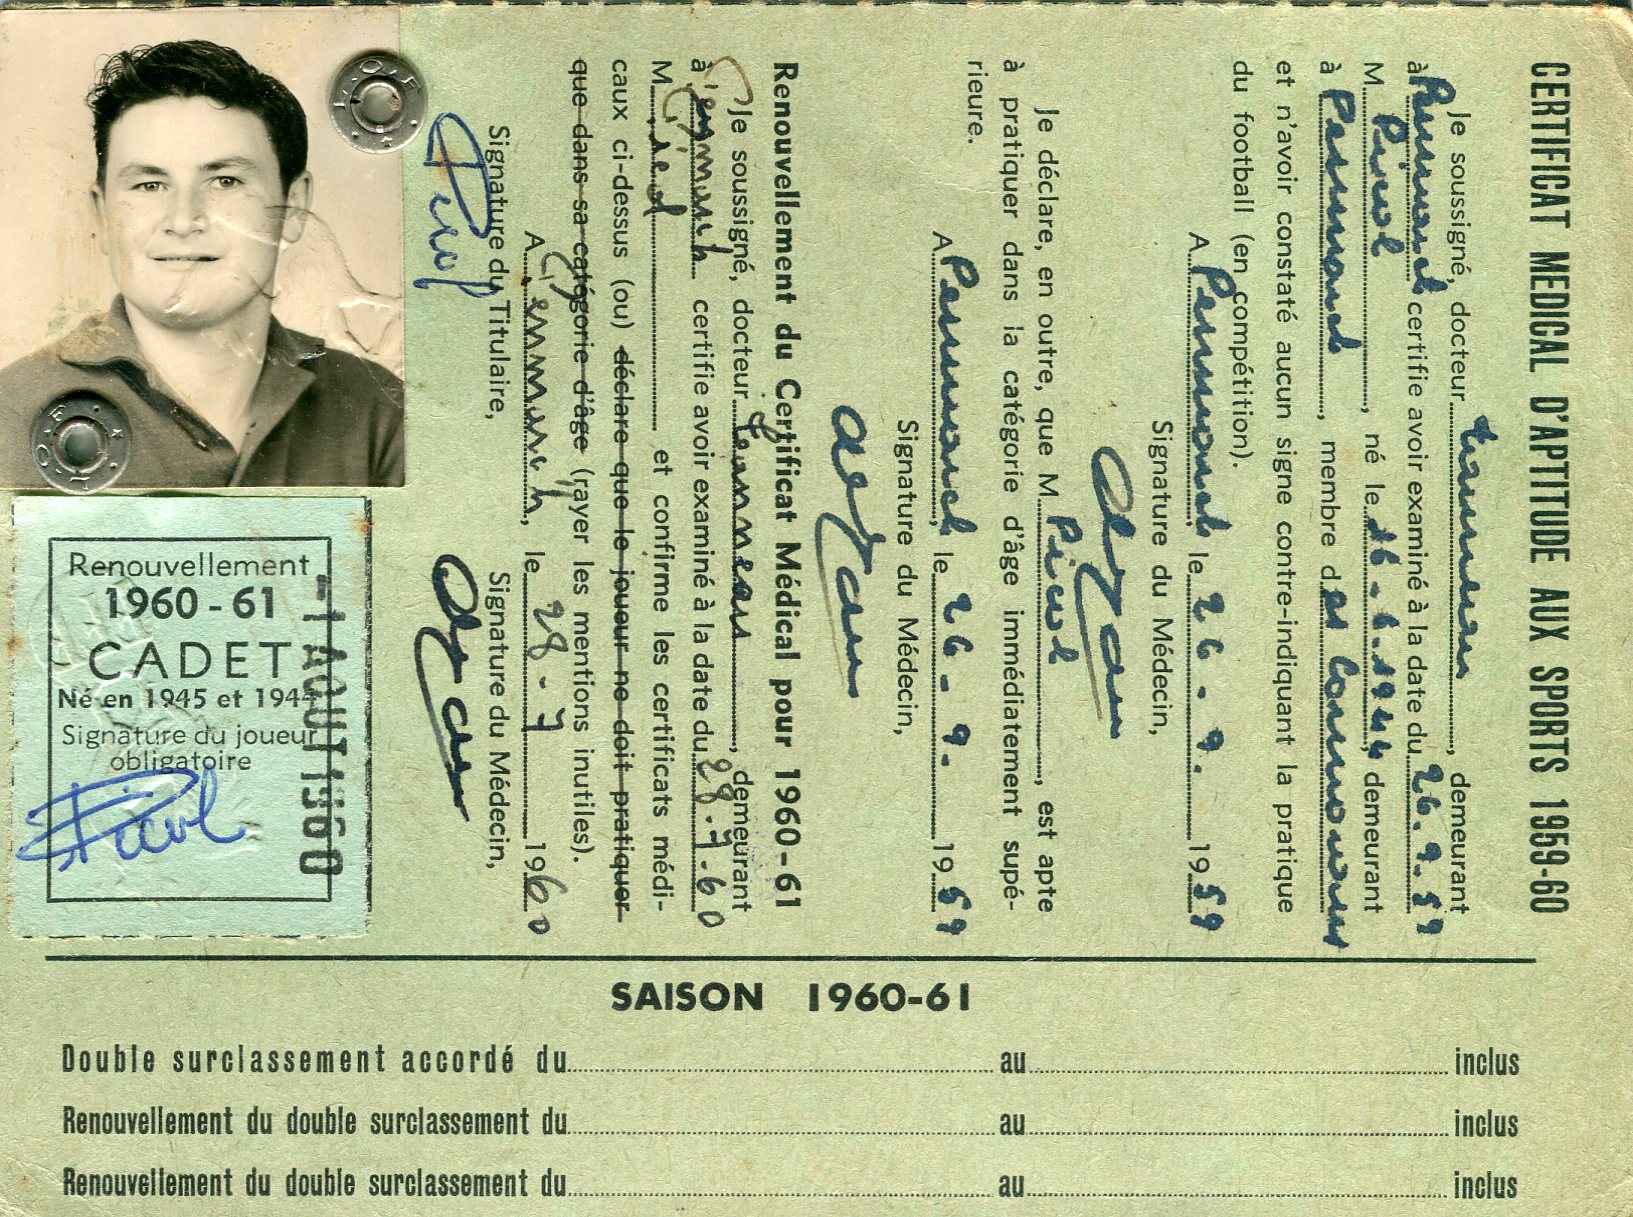 CERTIFICAT MEDICAL D'APTITUDE AUX SPORTS 1959-60
Je soussigné, docteur, demeurant
à certifie avoir examiné à la date du 26.9.59
M. Picol, né le 16.6.1944, demeurant
à, membre des
et n'avoir constaté aucun signe contre-indiquant la pratique
du football (en compétition).
A, le 26.9. 1959
Signature du Médecin,
Je déclare, en outre, que M. Picol, est apte
à pratiquer dans la catégorie d'âge immédiatement supé-
rieure.
A, le 26-9. 1959
Signature du Médecin,
Renouvellement du Certificat Médical pour 1960-61
Je soussigné, docteur, demeurant
à certifie avoir examiné à la date du 28.7.60
M. Picol et confirme les certificats médi-
caux ci-dessus (ou) déclare que le joueur ne doit pratiquer
que dans sa catégorie d'âge (rayer les mentions inutiles).
A, le 28-7 1960
Signature du Titulaire,
Signature du Médecin,
Picol
L.O.F.
L.O.F.
Renouvellement
1960-61
CADET
Né en 1945 et 1944
Signature du joueur
obligatoire
Picol
-1 AOUT 1960
SAISON 1960-61
Double surclassement accordé du au inclus
Renouvellement du double surclassement du au inclus
Renouvellement du double surclassement du au inclus